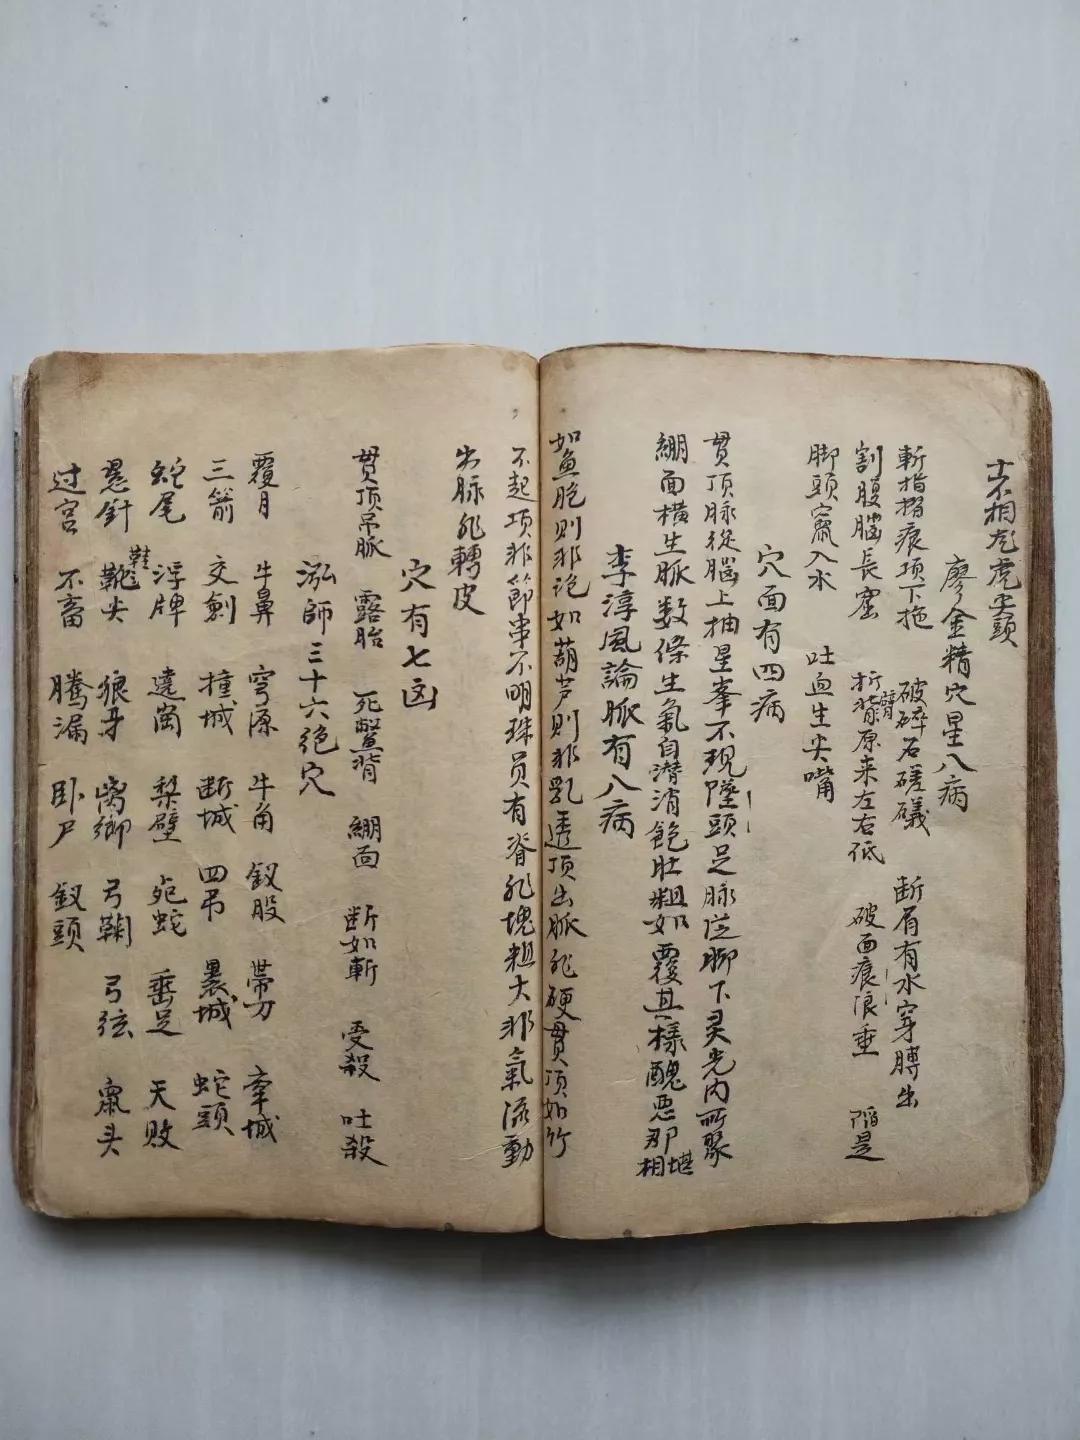 十不相龙虎尖頭
廖金精穴星八病
斬指摺痕項下拖 破碎石磋礒 断肩有水穿膊出
割腹腦長窟 折臂原来左右低 破面痕浪垂 陷是
脚头竄入水 吐血生尖嘴
穴面有四病
贯頂脉從腦上抽星峯不现墜頭足脉从脚下灵光内所聚
綳面横生脈数條生氣自潜消飽肚粗如覆其樣醜恶那堪相
李淳風論脈有八病
如魚胞則非泡如葫芦則非乳透頂出脈非硬贯頂如竹
不起項非節串不明珠员有脊非塊粗大非氣流動
出脉非轉皮
穴有七凶
贯顶吊脈 露胎 死鱉背 綳面 断如斬 受殺 吐殺
泓師三十六绝穴
覆月 牛鼻 穹源 牛角 釵股 带刀 牽城
三箭 交劍 撞城 断城 四吊 裹城 蛇頭
蛇尾 浮牌 遶崗 梨壁 死蛇 垂足 天败
懸針 靴尖 狼牙 离鄉 弓鞠 弓弦 禀头
鞋尖
过宫 不畜 騰漏 卧尸 釵頭